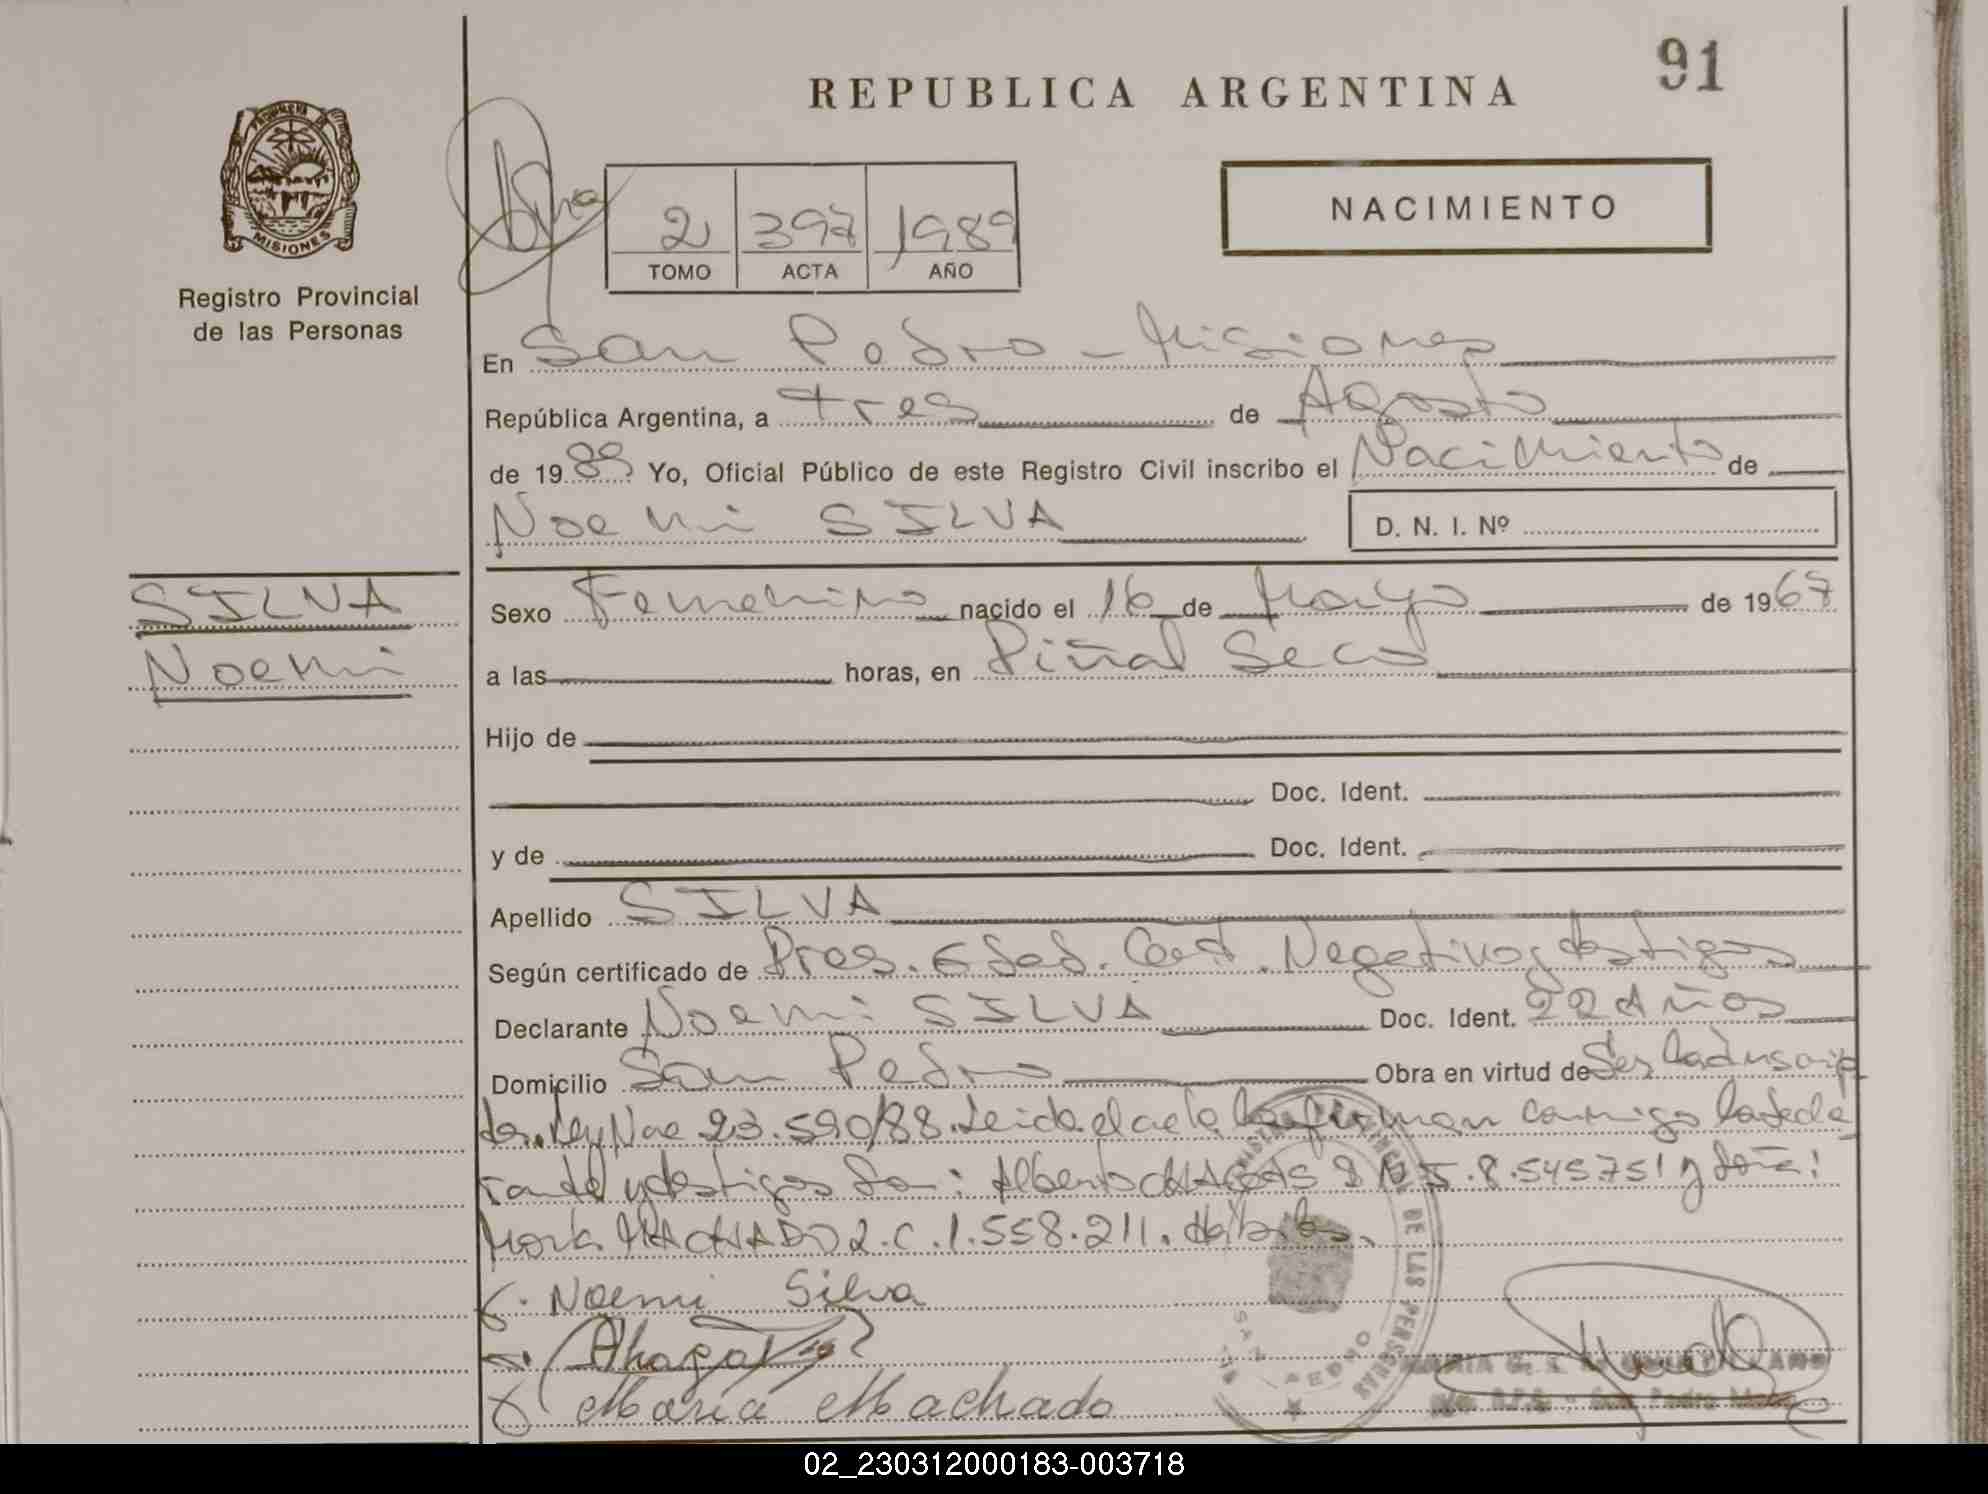 91
REPUBLICA ARGENTINA
PROVINCIA DE
MISIONES
Registro Provincial
de las Personas
2 397 1989
TOMO ACTA AÑO
NACIMIENTO
En San Pedro - Misiones
República Argentina, a tres de Agosto
de 1989 Yo, Oficial Público de este Registro Civil inscribo el Nacimiento de
Noemi SILVA
D. N. I. Nº
SILVA
Noemi
Sexo Femenino nacido el 16 de Mayo de 1967
a las horas, en Piñal Seco
Hijo de
Doc. Ident.
y de Doc. Ident.
Apellido SILVA
Según certificado de Pres. Edad. Cert. Negativo y testigos
Declarante Noemi SILVA Doc. Ident. 22 Años
Domicilio San Pedro Obra en virtud de Ser la inscrip
Ley Nac 23.590/88. Leida el acta la firman conmigo la decla
rante y testigos Don: Alberto CHAGAS D N I. 8.545.751 y doña:
María MACHADO 2.C. 1.558.211. habiles.
Noemi Silva
Chagas
Maria Machado
DE LAS PERSONAS
SAN PEDRO
02_230312000183-003718